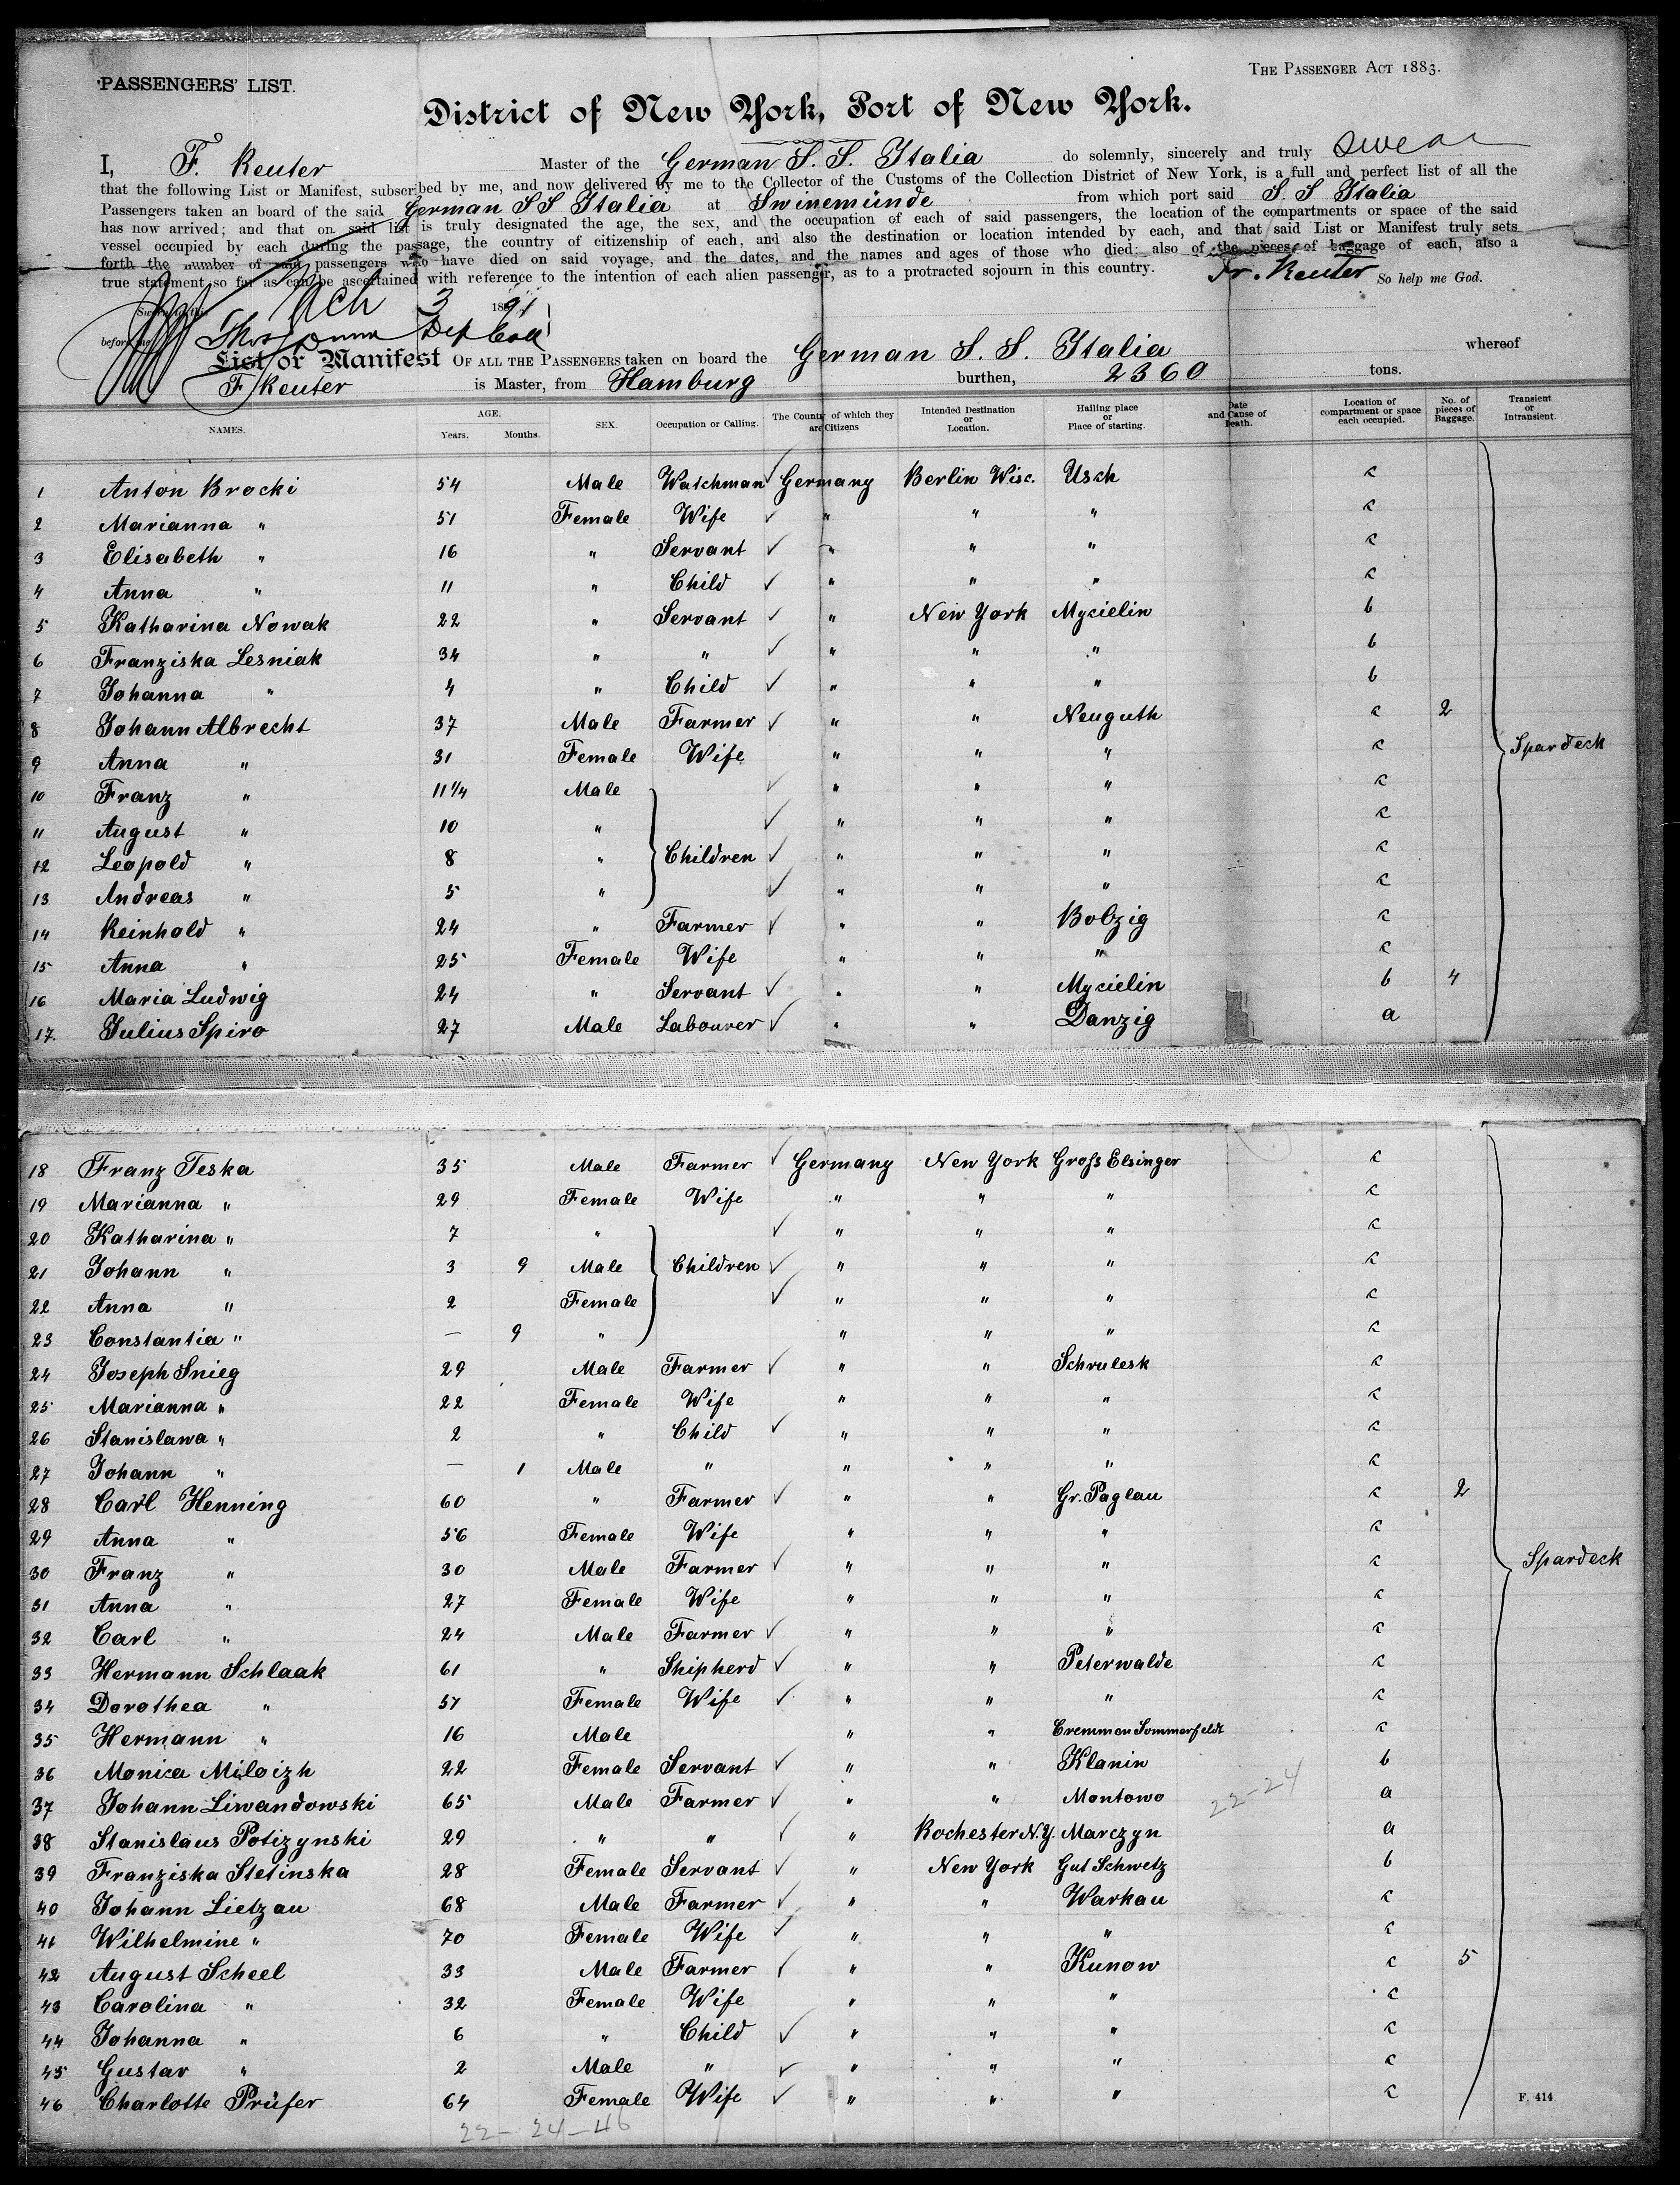 PASSENGERS' LIST.
THE PASSENGER ACT 1883.
District of New York, Port of New York.
I, F. Reuter Master of the German S. S. Italia do solemnly, sincerely and truly swear
that the following List or Manifest, subscribed by me, and now delivered by me to the Collector of the Customs of the Collection District of New York, is a full and perfect list of all the
Passengers taken an board of the said German S S Italia at Swinemünde from which port said S. S Italia
has now arrived; and that on said list is truly designated the age, the sex, and the occupation of each of said passengers, the location of the compartments or space of the said
vessel occupied by each during the passage, the country of citizenship of each, and also the destination or location intended by each, and that said List or Manifest truly sets
forth the number of said passengers who have died on said voyage, and the dates, and the names and ages of those who died; also of the pieces of baggage of each, also a
true statement so far as can be ascertained with reference to the intention of each alien passenger, as to a protracted sojourn in this country. Fr. Reuter So help me God.
Sworn to this Mch 3 1891
before me Dep Coll
List or Manifest OF ALL THE PASSENGERS taken on board the German S. S. Italia whereof
F Reuter is Master, from Hamburg burthen, 2360 tons.
NAMES. AGE. Years. Months. SEX. Occupation or Calling. The County of which they are Citizens Intended Destination or Location. Hailing place or Place of starting. Date and Cause of Death. Location of compartment or space each occupied. No. of pieces of Baggage. Transient or Intransient.
1 Anton Brocki 54 Male Watchman ✓ Germany Berlin Wisc. Usch c
2 Marianna " 51 Female Wife ✓ " " " c
3 Elisabeth " 16 " Servant ✓ " " " c
4 Anna " 11 " Child ✓ " " " c
5 Katharina Nowak 22 " Servant ✓ " New York Mycielin b
6 Franziska Lesniak 34 " " ✓ " " " b
7 Johanna " 4 " Child ✓ " " " b
8 Johann Albrecht 37 Male Farmer ✓ " " Neuguth c 2
9 Anna " 31 Female Wife " " " c Spardeck
10 Franz " 11 1/4 Male ✓ " " " c
11 August " 10 " ✓ " " " c
12 Leopold " 8 " Children ✓ " " " c
13 Andreas " 5 " ✓ " " " c
14 Reinhold " 24 " Farmer ✓ " " Bobzig c
15 Anna " 25 Female Wife " " " c
16 Maria Ludwig 24 " Servant ✓ " " Mycielin b 4
17. Julius Spiro 27 Male Labourer ✓ " " Danzig a
18 Franz Teska 35 Male Farmer ✓ Germany New York Gross Elsinger c
19 Marianna " 29 Female Wife " " " c
20 Katharina " 7 " ✓ " " " c
21 Johann " 3 9 Male Children ✓ " " " c
22 Anna " 2 Female ✓ " " " c
23 Constantia " — 9 " " " " c
24 Joseph Snieg 29 Male Farmer ✓ " " Schrulesk c
25 Marianna " 22 Female Wife " " " c
26 Stanislawa " 2 " Child ✓ " " " c
27 Johann " — 1 Male " " " " c
28 Carl Henning 60 " Farmer ✓ " " Gr. Paglau c 2
29 Anna " 56 Female Wife " " " c
30 Franz " 30 Male Farmer ✓ " " " c Spardeck
31 Anna " 27 Female Wife " " " c
32 Carl " 24 Male Farmer ✓ " " " c
33 Hermann Schlaak 61 " Shipherd ✓ " " Peterwalde c
34 Dorothea " 57 Female Wife ✓ " " " c
35 Hermann " 16 Male " " Cremmen Sommerfeldt c
36 Monica Miloizh 22 Female Servant ✓ " " Klanin b
37 Johann Liwandowski 65 Male Farmer ✓ " " Montowo 22-24 a
38 Stanislaus Potizynski 29 " " ✓ " Rochester N.Y. Marczyn a
39 Franziska Stetinska 28 Female Servant ✓ " New York Gut Schwetz b
40 Johann Lietzau 68 Male Farmer ✓ " " Warkau c
41 Wilhelmine " 70 Female Wife ✓ " " " c
42 August Scheel 33 Male Farmer ✓ " " Kunow c 5
43 Carolina " 32 Female Wife " " " c
44 Johanna " 6 " Child ✓ " " " c
45 Gustav " 2 Male " ✓ " " " c
46 Charlotte Prüfer 64 Female Wife ✓ " " " c F. 414
22-24-46